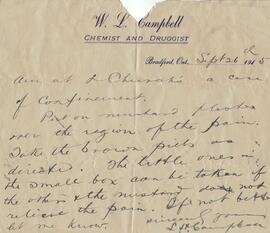 W. L. Campbell
CHEMIST AND DRUGGIST
Bradford, Ont. Sept 26th 1915
am at a case
of confinement.
Put on mustard plaster
over the region of the pain.
Take the brown pills as
directed. The little ones in
the small box can be taken if
the others & the mustard does not
relieve the pain. If not better
let me know.
Sincerely yours
Campbell